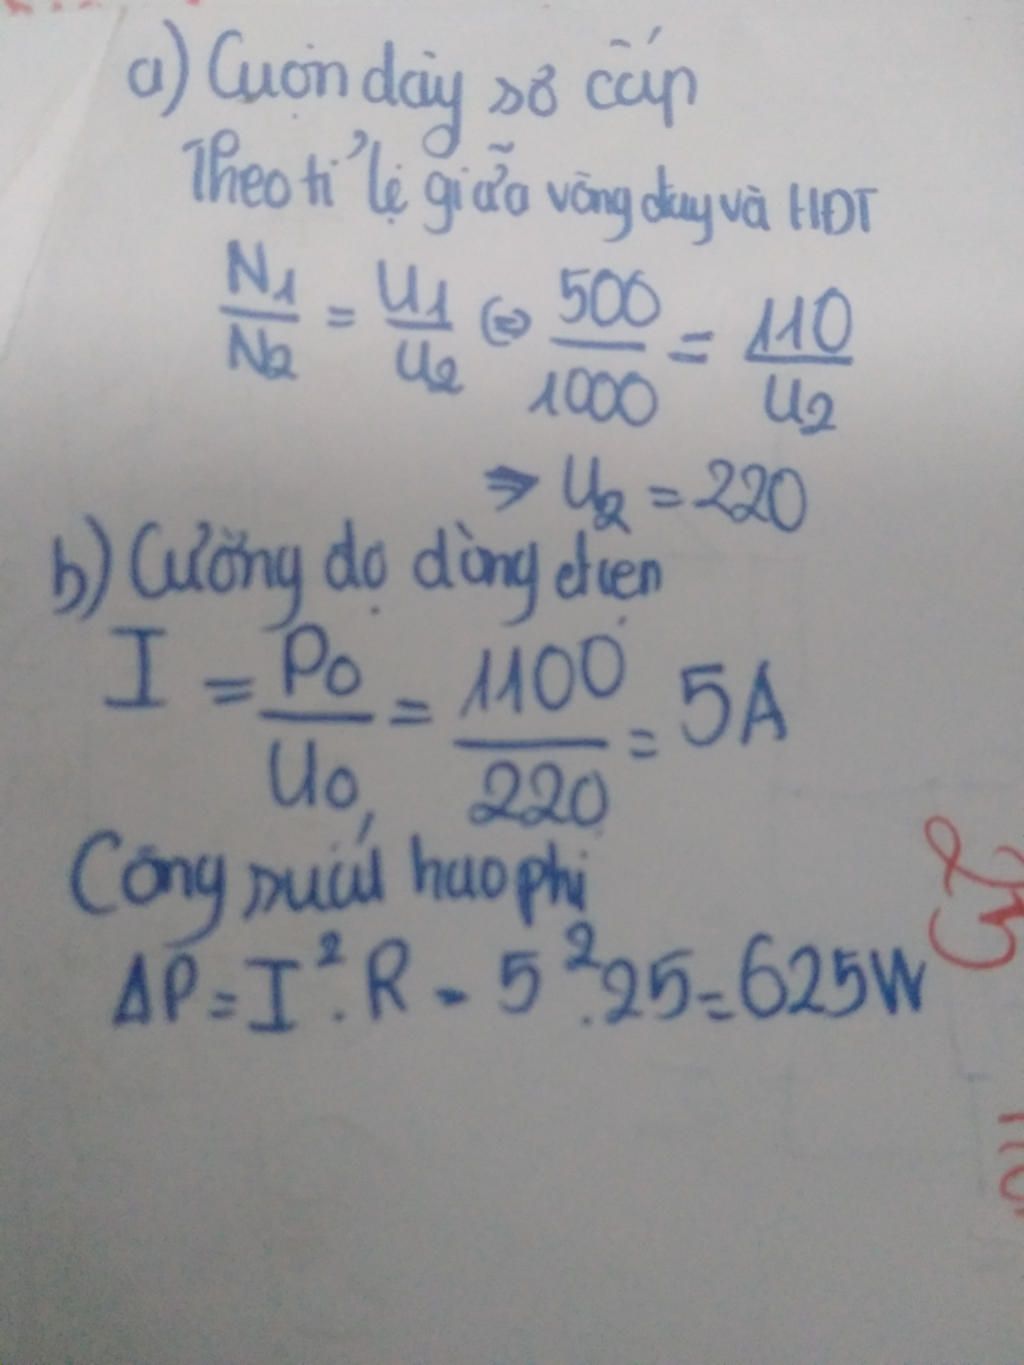 a) Cuộn dây sơ cấp
Theo tỉ lệ giữa vòng dây và HĐT
N1/N2 = U1/U2 ⇔ 500/1000 = 110/U2
⇒ U2 = 220
b) Cường độ dòng điện
I = P0/U0 = 1100/220 = 5A
Công suất hao phí
ΔP = I².R = 5².25 = 625W